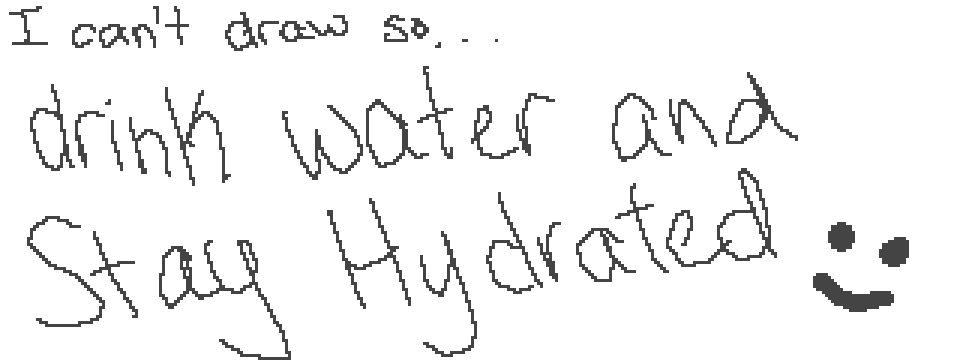 I can't draw so...
drink water and
Stay Hydrated